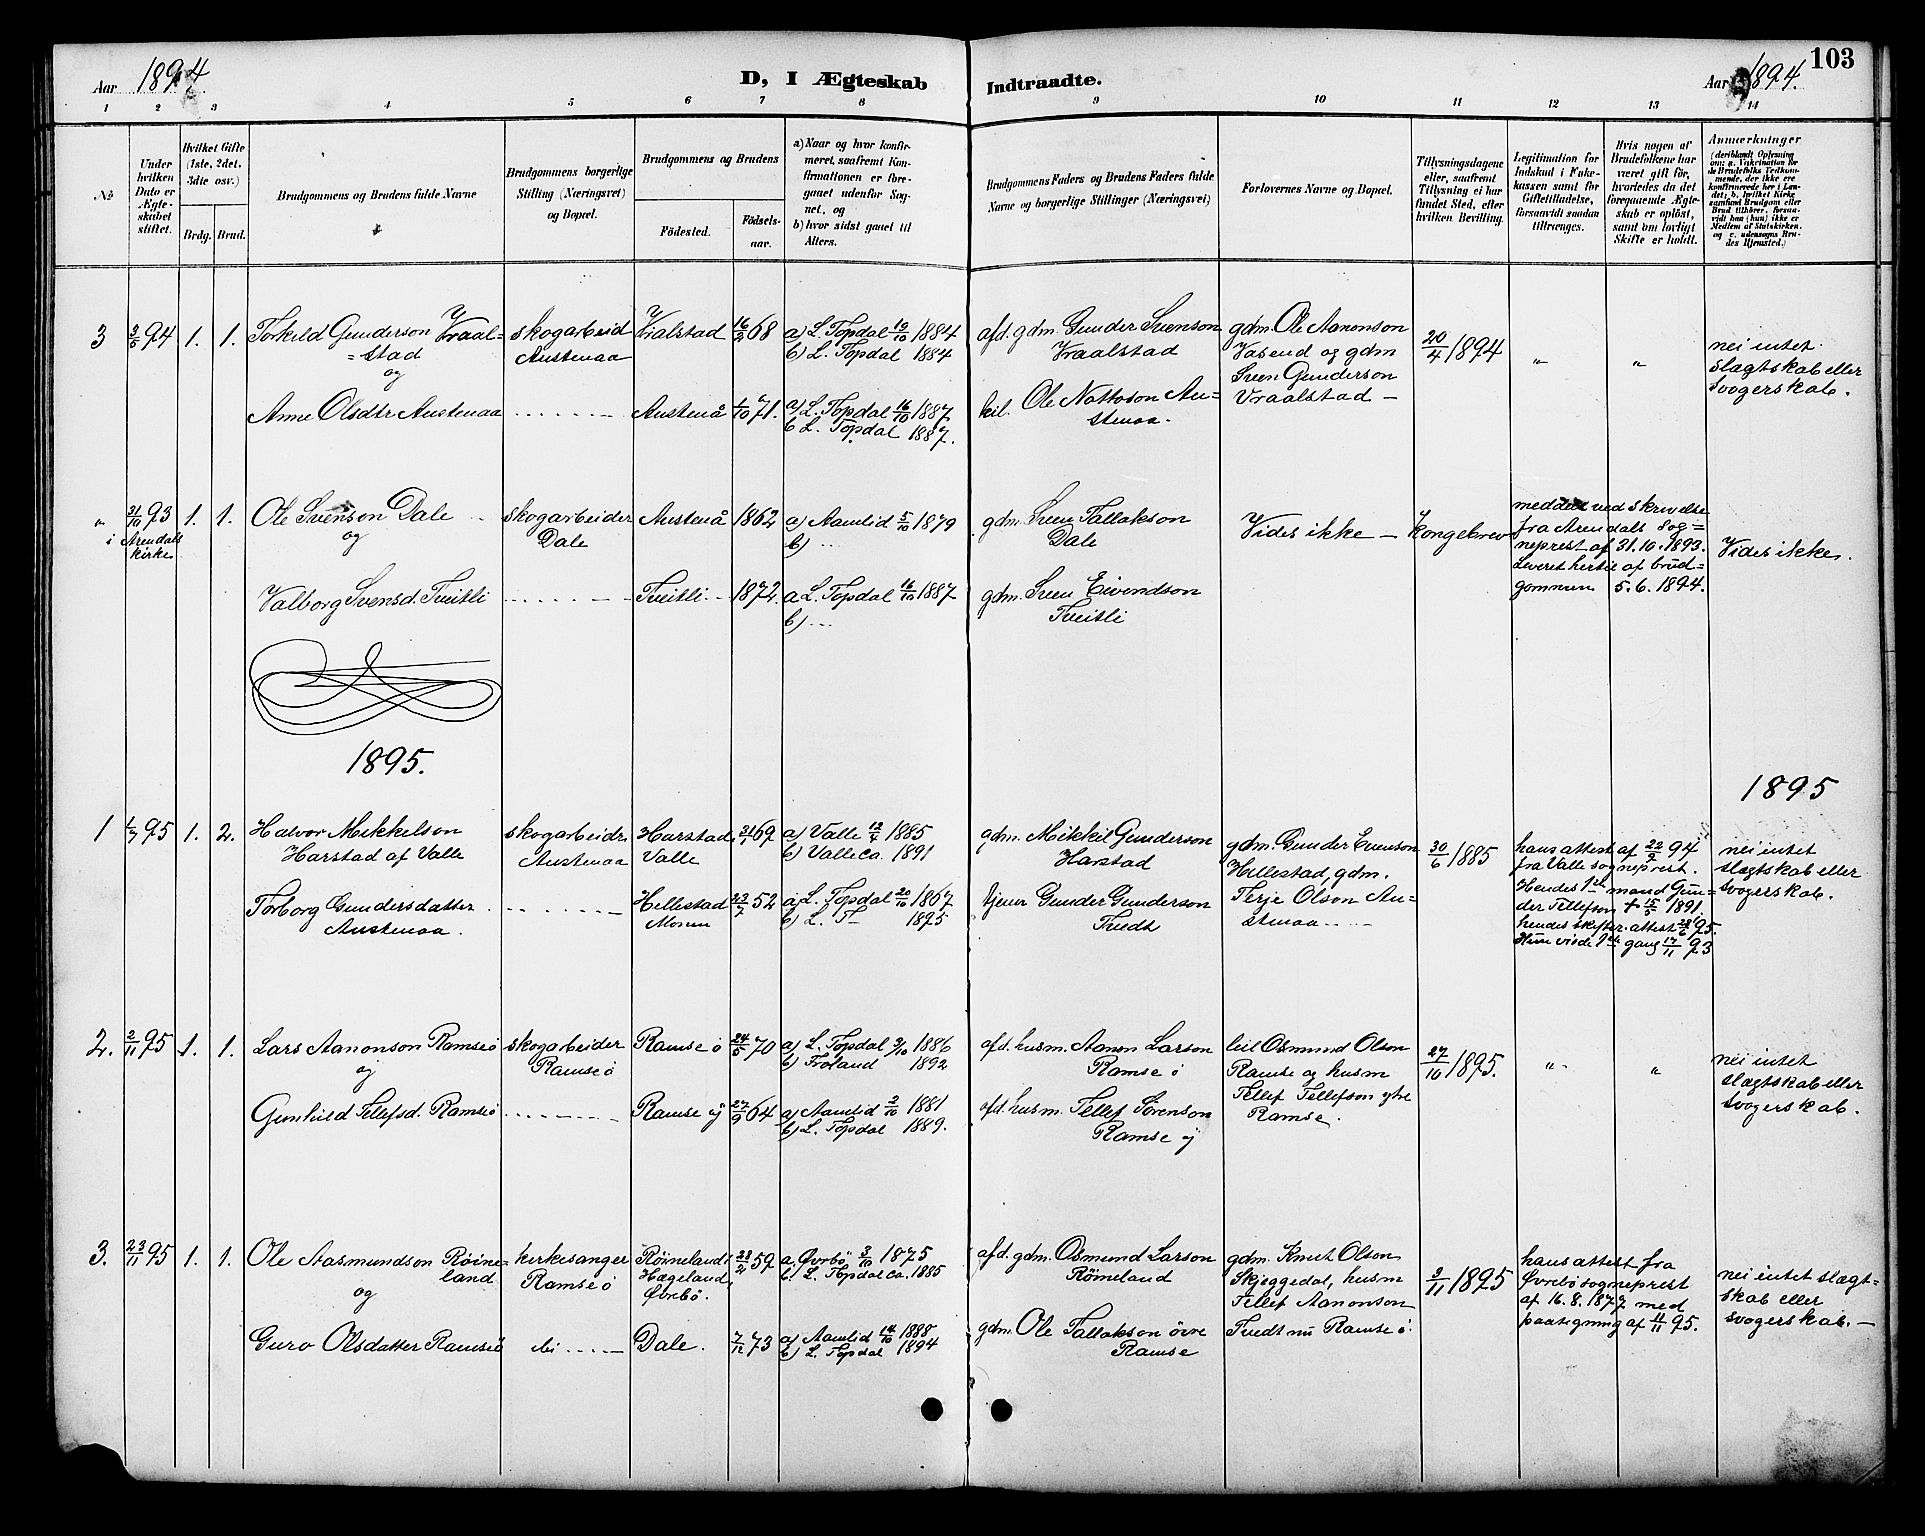 103
Aar 1894. D, I Ægteskab Indtraadte. Aar 1894.
1 2 3 4 5 6 7 8 9 10 11 12 13 14
No
Under hvilken Dato er Ægteskabet stiftet.
Hvilket Gifte (1ste, 2det, 3die osv.)
Brdg. Brud.
Brudgommens og Brudens fulde Navne
Brudgommens borgerlige Stilling (Næringsvei) og Bopæl.
Brudgommens og Brudens
Födested. Födsels-aar.
a) Naar og hvor konfirmeret, saafremt Konfirmationen er foregaaet udenfor Sognet, og
b) hvor sidst gaaet til Alters.
Brudgommens Faders og Brudens Faders fulde Navne og borgerlige Stillinger (Næringsvei)
Forlovernes Navne og Bopæl.
Tillysningsdagene eller, saafremt Tillysning ei har fundet Sted, efter hvilken Bevilling.
Legitimation for Indskud i Enkekassen samt for Giftetilladelse, forsaavidt saadan tiltrænges.
Hvis nogen af Brudefolkene har været gift før, hvorledes da det foregaaende Ægteskab er oplöst, samt om lovligt Skifte er holdt.
Anmærkninger
(deriblandt Oplysning om: a. Vakcination for de Brudefolks Vedkommende, der ikke ere konfirmerede her i Landet; b. hvilket Kirkesamfund Brudgom eller Brud tilhörer, forsaavidt han (hun) ikke er Medlem af Statskirken, og c. udensogns Brudes Hjemsted.)
3 3/5 94 1. 1. Torkild Gunderson Vraal=
=stad
og
skogarbeid
Austenaa
Vralstad 16/2 68
a) L. Topdal 12/10 1884
b) L. Topdal 1884
afd. gdm. Gunder Svenson
Vraalstad
gdm. Ole Aanonson
Vasend og gdm
Sven Gunderson
Vraalstad —
20/4 1894 " "
nei intet
slægtskab eller
svogerskab.
Anne Olsdtr Austenaa Austenå 1/10 71.
a) L. Topdal 16/10 1887.
b L. Topdal 1887.
kil. Ole Nattoson Au=
stenaa.
" 31/10 93 1. 1. Ole Svenson Dale
i Arendals
kirke
og
skogarbeider
Dale
Austenå 1862
a) Aamlid 5/10 1879
b) ...
gdm. Sven Tallakson
Dale
Vides ikke —
Kongebrev
meddelt ved skrivelse
fra Arendals sog=
neprest af 31.10.1893.
Leveret hertil af brud=
gommen 5.6.1894.
Vides ikke.
Valborg Svensd. Tveitli Tveitli 1872.
a L. Topdal 16/10 1887
b) ...
gdm. Sven Eivendson
Tveitli
1895. 1895
1 1/7 95 1. 2. Halvor Mikkelson
Harstad af Valle
skogarbeidr
Austenaa
Harstad
Valle
21/1 69
a) Valle 12/4 1885
b) Valle ca. 1891
gdm. Mikkil Gunderson
Harstad
gdm. Gunder Evenson
Hillestad, gdm.
Terje Olson Au=
stenaa
30/6 1885
hans attest af 22/2 94
fra Valle sogneprest.
Hendes 1st mand Gun=
der Tellefson † 15/5 1891.
hendes skifter. attest 28/6 95.
Hun viede 1st gang 17/11 93
nei intet
slægtskab eller
svogerskab.
Torborg Gundersdatter
Austenaa.
Hellestad
Moren
23/7 52
a) L. Topdal 20/10 1867
b) L. T— 1895
tjener Gunder Gunderson
Tvedt
2. 2/11 95 1. 1. Lars Aanonson Ramse ö
og
skogarbeider
Ramse ö
Ramse ö 24/5 70
a) L. Topdal 3/10 1886
b) Froland 1892
afd. husm. Aanon Larson
Ramse ö
leil Osmund Olson
Ramse og husm
Tellef Tellefson ytre
Ramse.
27/10 1895. " "
nei intet
slægtskab eller
svogerskab.
Gunhild Tellefsd. Ramse ö Ramse y 27/9 64
a) Aamlid 2/10 1881
b) L. Topdal 1889.
afd. husm. Tellef Sörenson
Ramse y
3. 23/11 95 1. 1. Ole Aasmundson Röine=
land
og
kirkesanger
Ramse ö
Röineland i
Hægeland i
Övrebö.
28/2 59
a. Övrebö 3/10 1875
b) L. Topdal ca. 1885
afd. gdm. Osmund Larson
Röineland
gdm. Knut Olson
Skjeggedal, husm
Tellef Aanonson
Tvedt nu Ramse ö.
3/11 1895
hans attest fra
Övrebö sogneprest
af 16.8.1877 med
paategning af 11/11 95.
nei intet slægt=
skab eller
svogerskab. —
Guro Olsdatter Ramse ö Dale. 7/12 73
a) Aamlid 14/10 1888
b) L. Topdal 1894
gdm. Ole Tallakson övre
Ramse